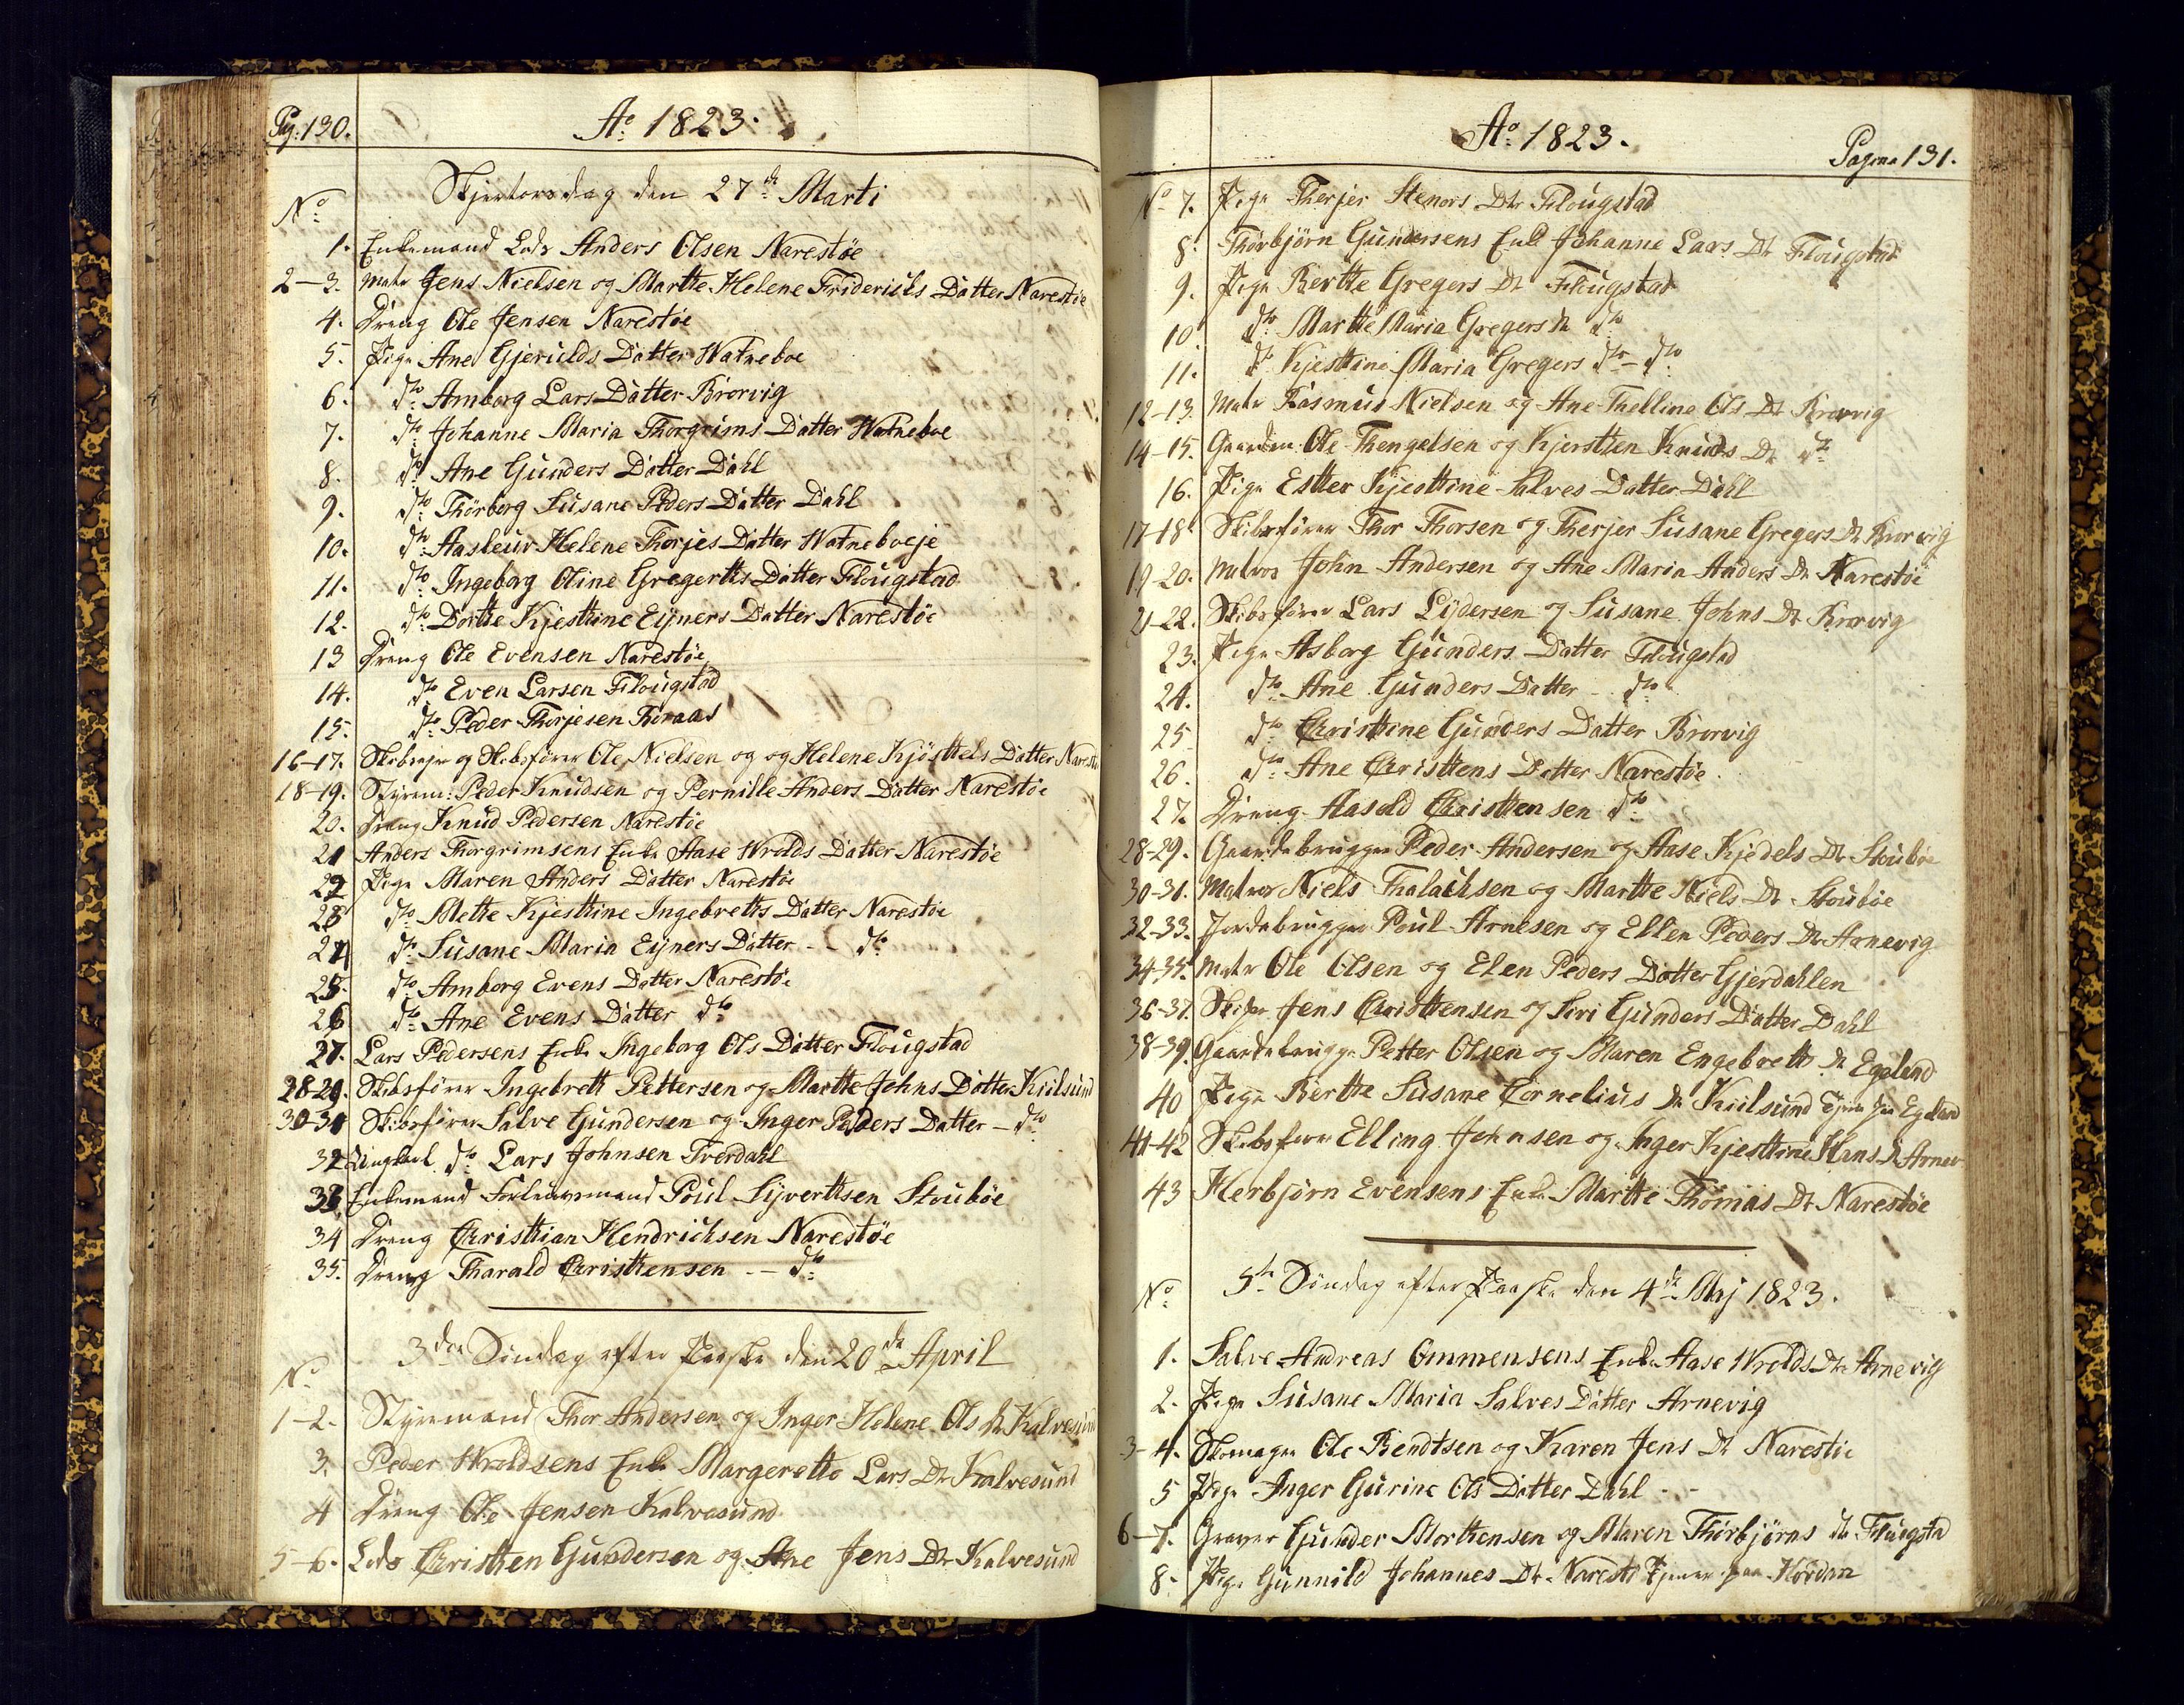 Pag: 130.
Ao 1823.
Skjertorsdag den 27de Marti
No
1. Enkemand Lods Anders Olsen Narestøe
2-3. Matr Jens Nielsen og Marthe Helene Friderichs Datter Narestøe
4. Dreng Ole Jensen Narestøe
5. Pige Ane Gjerulds Datter Watneboe
6. do Amborg Lars Datter Brorvig
7. do Johanne Maria Thorgrims Datter Watneboe
8. do Ane Gunders Datter Dahl
9. do Thorborg Susane Peders Datter Dahl
10. do Aasleuv Helene Thorjes Datter Watneboeje
11. do Ingeborg Oline Gregertts Datter Flougstad
12. do Dortte Kjesttine Eyners Datter Narestøe
13 Dreng Ole Evensen Narestøe
14. do Even Larsen Flougstad
15. do Peder Thorjesen Boraas
16-17. Skibsejer og Skibsfører Ole Nielsen og og Helene Kjösttels Datter Narestø
18-19. Styrem: Peder Knudsen og Pernille Anders Datter Narestøe
20. Dreng Knud Pedersen Narestøe
21 Anders Thorgrimsens Enke Aase Wrolds Datter Narestøe
22 Pige Maren Anders Datter Narestøe
23 do Mette Kjesttine Ingebretts Datter Narestøe
24 do Susane Maria Eyners Datter - - do
25. do Amborg Evens Datter Narestøe
26 do Ane Evens Datter do
27. Lars Pedersens Enke Ingeborg Ols Datter Flougstad
28-29. Skibsfører Ingebrett Pettersen og Martte Johns Datter Kiilsund
30-31 Skibsfører Salve Gundersen og Inger Peders Datter - do
32 Ungkarl do Lars Johnsen Tverdahl
33 Enkemand Forlensmand Poul Syverttsen Stoubøe
34 Dreng Christtian Hendrichsen Narestøe
35. Dreng Tharald Christtensen - - do
3die Søndag efter Paaske den 20de April
No
1-2. Styrmand Thor Andersen og Inger Helene Ols Dr Kalvesund
3. Peder Wroldsens Enke Margerette Lars Dr Kalvesund
4 Dreng Ole Jensen Kalvesund
5-6. Lods Christten Gundersen og Ane Jens Dr Kalvesund
Ao 1823.
Pagina 131.
No 7. Pige Therjer Stenors Dtr Flougstad
8. Thorbjörn Gundersens Enke Johanne Lars Dr Flougstad
9. Pige Bertte Gregers Dr Flougstad
10 do Martte Maria Gregers Dr do
11. do Kjesttine Maria Gregers do - do
12-13 Matr Rasmus Nielsen og Ane Thelline Ols Dr Brorvig
14-15. Gaardm: Ole Thengelsen og Kjerstten Knuds Dr do
16. Pige Estter Kjesttine Salves Datter Dahl
17-18 Skibsfører Thor Thorsen og Therjer Susane Gregers Dr Brorvig
19-20. Matros John Andersen og Ane Maria Anders Dr Narestøe
21-22. Skibsfører Lars Lydersen og Susane Johns Dr Brorvig
23. Pige Asborg Gunders Datter Flougstad
24. do Ane Gunders Datter - do
25 do Christtine Gunders Datter Brorvig
26. do Ane Christtens Datter Narestøe.
27. Dreng Aasold Christtensen do
28-29. Gaardebrugger Peder Andersen og Aase Kjedels Dr Stoubøe
30-31. Matros Niels Thalachsen og Martte Niels Dr Stoubøe
32-33. Jordebrugger Poul Arnesen og Ellen Peders Dr Arnevig
34-35. Matr Ole Olsen og Elen Peders Datter Gjerdahlen
36-37. Skipr Jens Christtensen og Siri Gunders Datter Dahl
38-39. Gaardebrugger Petter Olsen og Maren Engebretts Dr Egeland
40 Pige Bertte Susane Cornelius Dr Kiilsund tjener paa Egeland
41-42 Skibsfører Elling Johnsen og Inger Kjesttine Hans D Arnev
43 Herbjørn Evensens Enke Martte Thomas Dr Narestøe
5te Søndag efter Paaske den 4de Maj 1823.
No
1. Salve Andreas Ommensens Enke Aase Wrolds Dr Arnevig
2. Pige Susane Maria Salves Datter Arnevig
3-4. Skomager Ole Bendtsen og Karen Jens Dr Narestøe
5 Pige Inger Gurine Ols Datter Dahl - -
6-7. Graver Gunder Morttensen og Maren Thorbjørns Dr Flougsta
8. Pige Gunnild Johannes Dr. Narestø tjener paa Hørdan